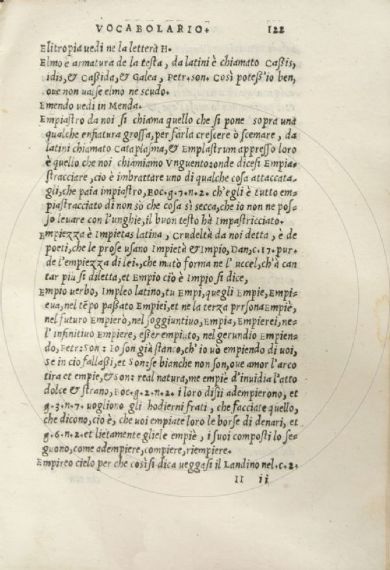 VOCABOLARIO. 122
Elitropia uedi ne la letterà H.
Elmo è armatura de la testa, da latini è chiamato Cassis,
idis, & Cassida, & Galea, Petr. son. Così potess'io ben,
oue non ualse elmo ne scudo.
Emendo uedi in Menda.
Empiastro da noi si chiama quello che si pone sopra una
qualche enfiatura grossa, per farla crescere ò scemare, da
latini chiamato Cataplasma, & Emplastrum appresso loro
è quello che noi chiamiamo Vnguento: onde dicesi Empia-
stracciare, cio è imbrattare uno di qualche cosa attaccata,
gli, che paia impiastro, Boc. g. 7. n. 2. ch'egli è tutto em-
piastracciato di non sò che cosa sì secca, che io non ne pos-
so leuare con l'unghie, il buon testo hà Impastricciato.
Empiezza è Impietas latina, Crudeltà da noi detta, è de
poeti, che le prose usano Impietà & Impio, Dan. c. 17. pur.
de l'empiezza di lei, che mutò forma ne l'uccel, ch'à can
tar piu si diletta, et Empio ciò è Impio si dice,
Empio uerbo, Impleo latino, tu Empi, quegli Empie, Empi-
eua, nel tẽpo passato Empiei, et ne la terza prrsona Empiè,
nel futuro Empierò, nel soggiuntiuo, Empia, Empierei, ne-
l'infinitiuo Empiere, esser empiuto, nel gerundio Empien-
do, Petr: Son: io son già stanco, ch'io uò empiendo di uoi,
Se in cio fallassi, et Son: se bianche non son, oue amor l'arco
tira et empie, & Son: real natura, me empie d'inuidia l'atto
dolce & strano, Boc. g. 2. n. 2. i loro disii adempierono, et
g. 3. n. 7. uogliono gli hodierni frati, che facciate quello,
che dicono, ciò è, che uoi empiate loro le borse di denari, et
g. 6. n. 2. et lietamente gliele empiè, i suoi composti lo se-
guono, come adempiere, compiere, riempiere.
Empireo cielo per che così si dica ueggasi il Landino nel. c. 2.
II ii